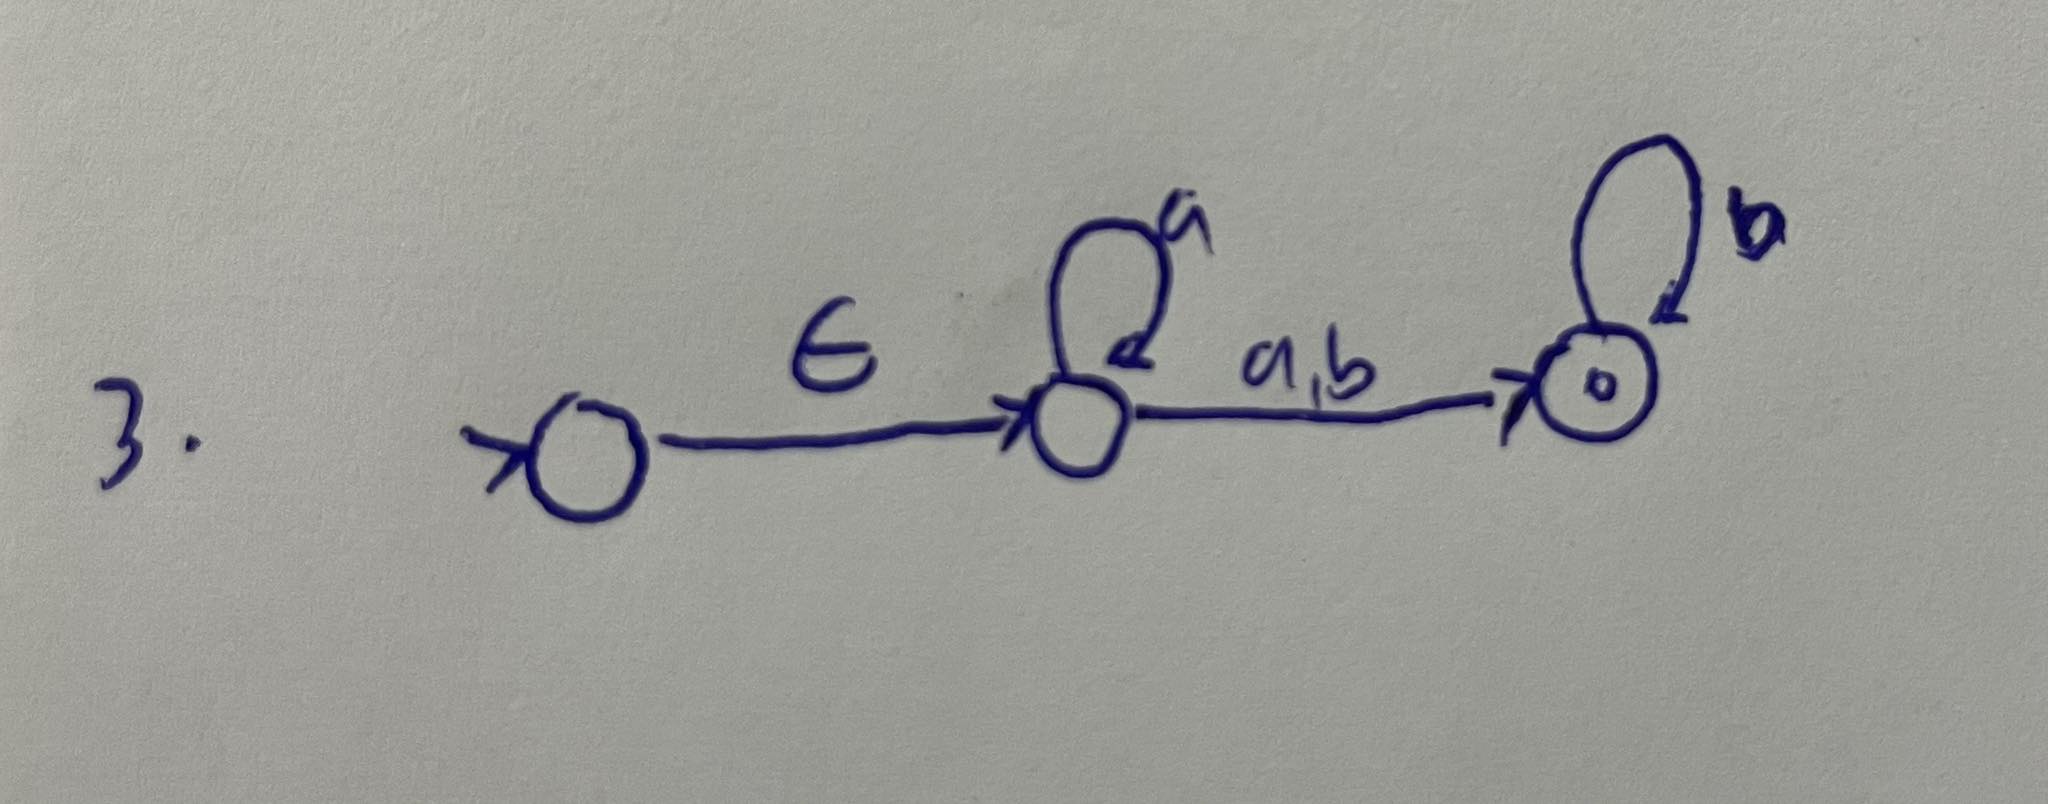 3. ε a a,b b